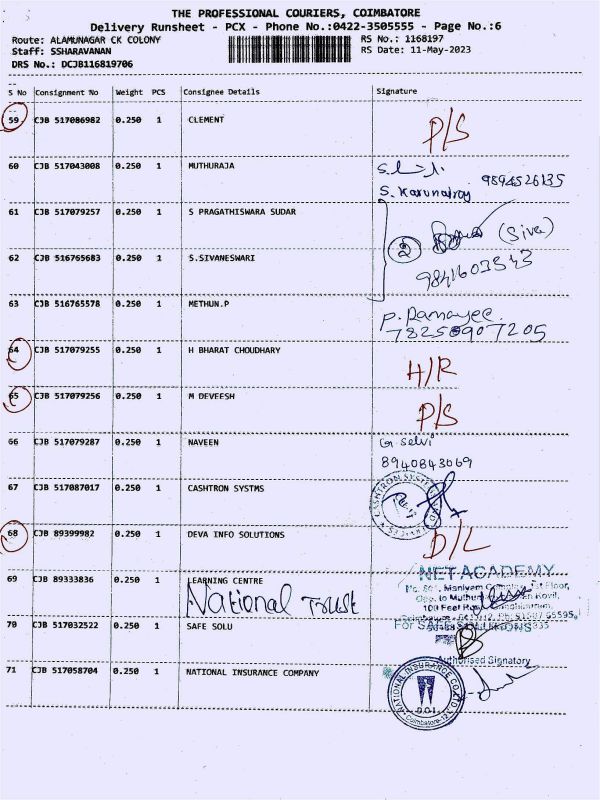 THE PROFESSIONAL COURIERS, COIMBATORE
Delivery Runsheet - PCX - Phone No.:0422-3505555 - Page No.:6
Route: ALAMUNAGAR CK COLONY RS No.: 1168197
Staff: SSHARAVANAN RS Date: 11-May-2023
DRS No.: DCJB116819706
S No Consignment No Weight PCS Consignee Details Signature
59 CJB 517086982 0.250 1 CLEMENT P/S
60 CJB 517043008 0.250 1 MUTHURAJA 9894526135
S. Karunairaj
61 CJB 517079257 0.250 1 S PRAGATHISWARA SUDAR 2 (Siva)
62 CJB 516765683 0.250 1 S.SIVANESWARI 9841603543
63 CJB 516765578 0.250 1 METHUN.P P. Ramayee
78250907205
64 CJB 517079255 0.250 1 H BHARAT CHOUDHARY H/R
65 CJB 517079256 0.250 1 M DEVEESH P/S
66 CJB 517079287 0.250 1 NAVEEN G Selvi
8940843069
67 CJB 517087017 0.250 1 CASHTRON SYSTMS
68 CJB 89399982 0.250 1 DEVA INFO SOLUTIONS D/L
69 CJB 89333836 0.250 1 LEARNING CENTRE NET ACADEMY
National Trust
100 Feet
70 CJB 517032522 0.250 1 SAFE SOLU FOR SAFE SOLUTIONS
Authorised Signatory
71 CJB 517058704 0.250 1 NATIONAL INSURANCE COMPANY NATIONAL INSURANCE CO.LTD
D.O.I.
Coimbatore-12